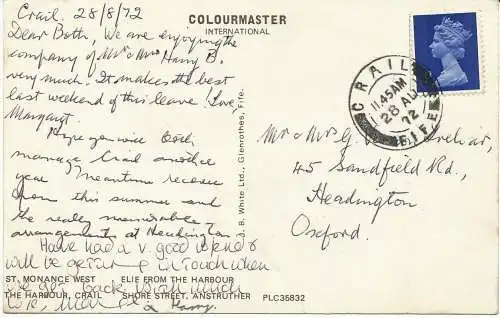 Crail. 28/8/72
Dear Both, We are enjoying the
company of Mr & Mrs Harry B.
very much. It makes the best
last weekend of this leave! Love,
Margaret.
Hope you will both
manage Crail another
year. Meantime
from this summer and
the really
arrangements at Headington
Have had a v. good w/end &
will be getting in touch when
we get back. With much
love,
& Harry.
COLOURMASTER
INTERNATIONAL
J. B. White Ltd., Glenrothes, Fife.
ST. MONANCE WEST ELIE FROM THE HARBOUR
THE HARBOUR, CRAIL SHORE STREET, ANSTRUTHER PLC35832
CRAIL
11.45AM
28 AU
72
FIFE
Mr & Mrs G.
45 Sandfield Rd.,
Headington
Oxford.